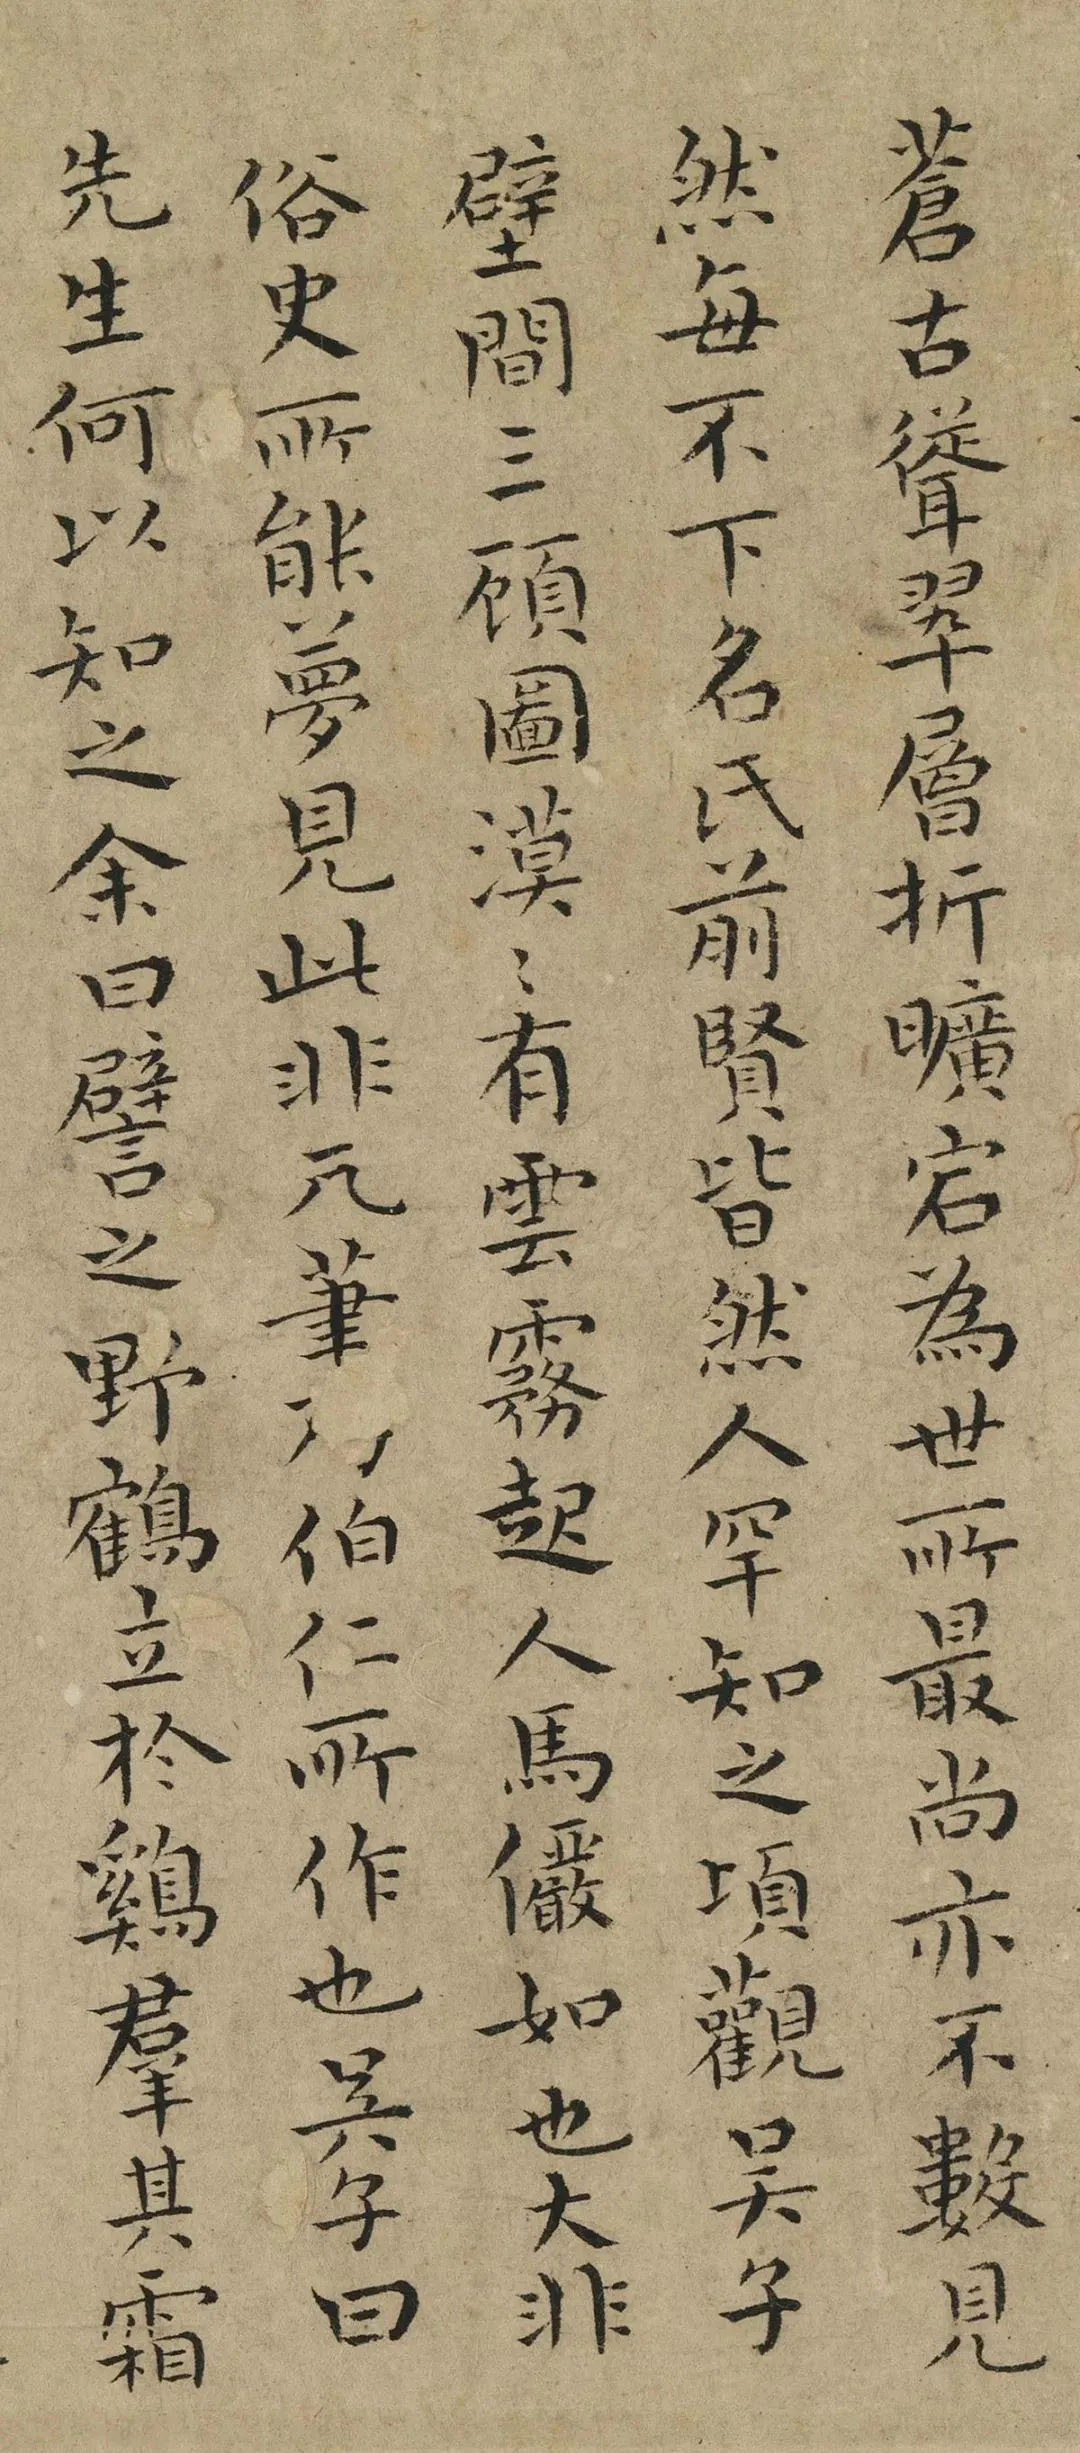 蒼古聳翠層折曠宕為世所最尚亦不數見
然每不下名氏前賢皆然人罕知之頃觀吴子
壁間三顧圖漠〻有雲霧起人馬儼如也大非
俗史所能夢見此非凡筆乃伯仁所作也吴子曰
先生何以知之余曰譬之野鶴立於鷄羣其霜